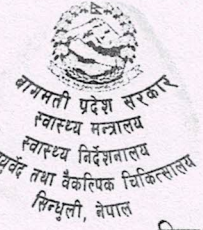 बागमती प्रदेश सरकार
स्वास्थ्य मन्त्रालय
स्वास्थ्य निर्देशनालय
तथा वैकल्पिक चिकित्सालय
सिन्धुली, नेपाल